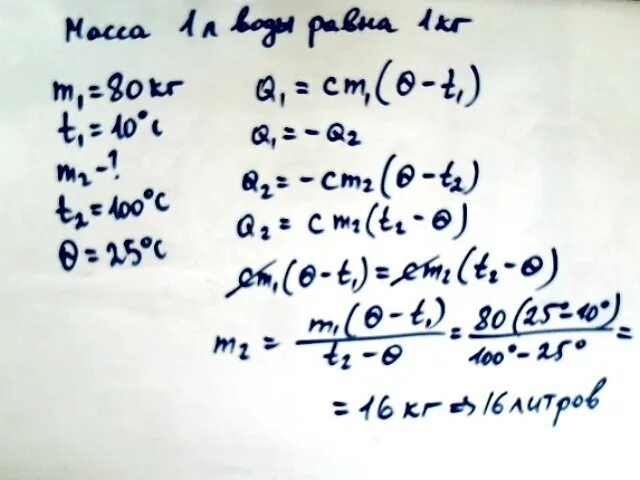 Масса 1 л воды равна 1 кг
m₁ = 80 кг
t₁ = 10°C
m₂ - ?
t₂ = 100°C
θ = 25°C
Q₁ = cm₁(θ - t₁)
Q₁ = - Q₂
Q₂ = - cm₂(θ - t₂)
Q₂ = cm₂(t₂ - θ)
cm₁(θ - t₁) = cm₂(t₂ - θ)
m₂ = m₁(θ - t₁) / t₂ - θ = 80(25° - 10°) / 100° - 25° =
= 16 кг ⇒ 16 литров